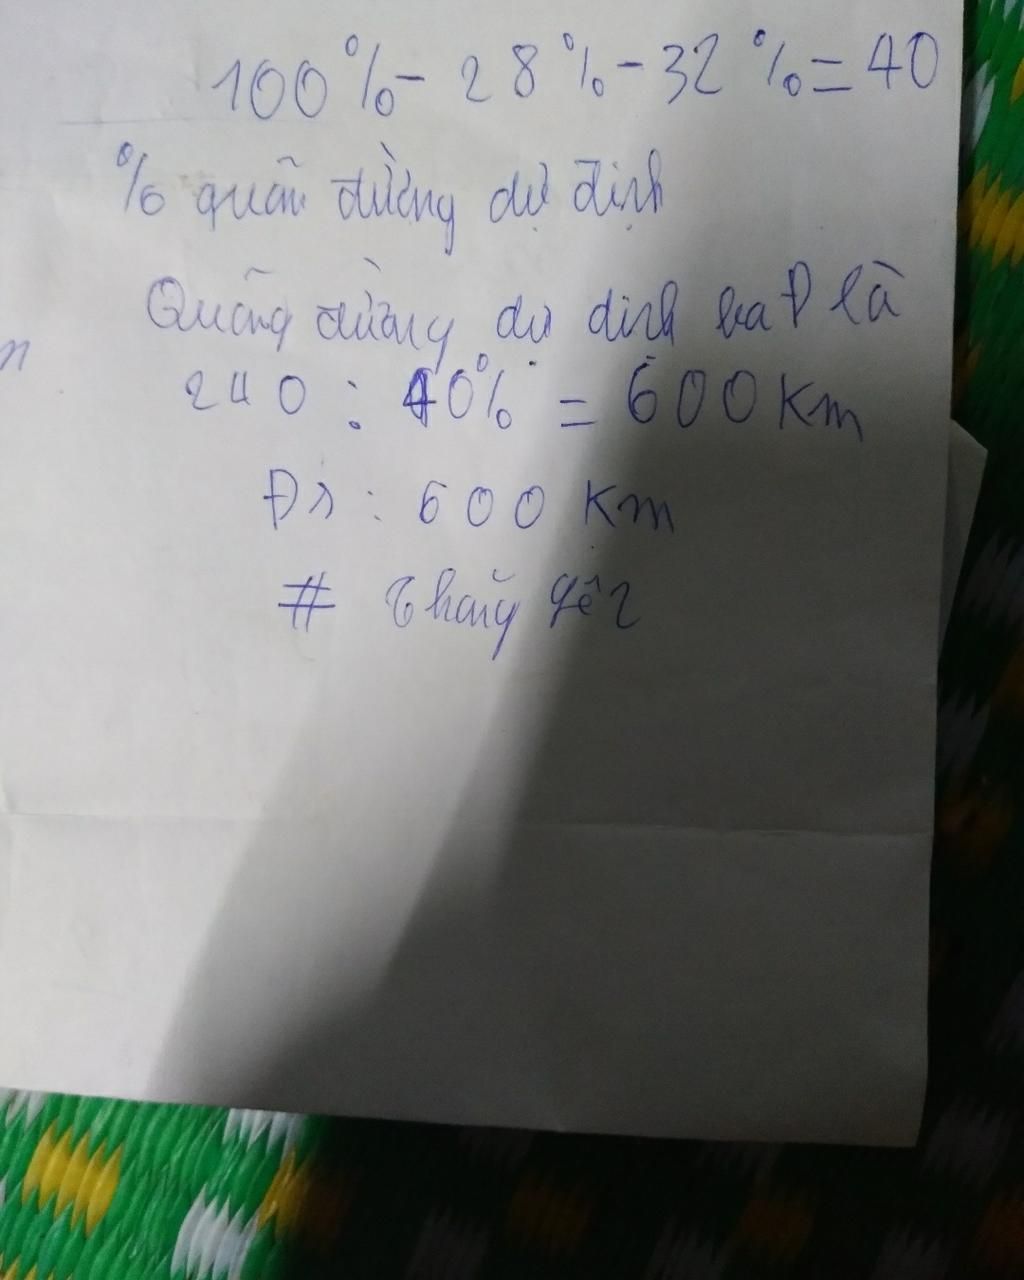 100% - 28% - 32% = 40
% quãn đường dự định
Quãng đường dự định là
n
240 : 40% = 600 Km
Đs : 600 Km
#